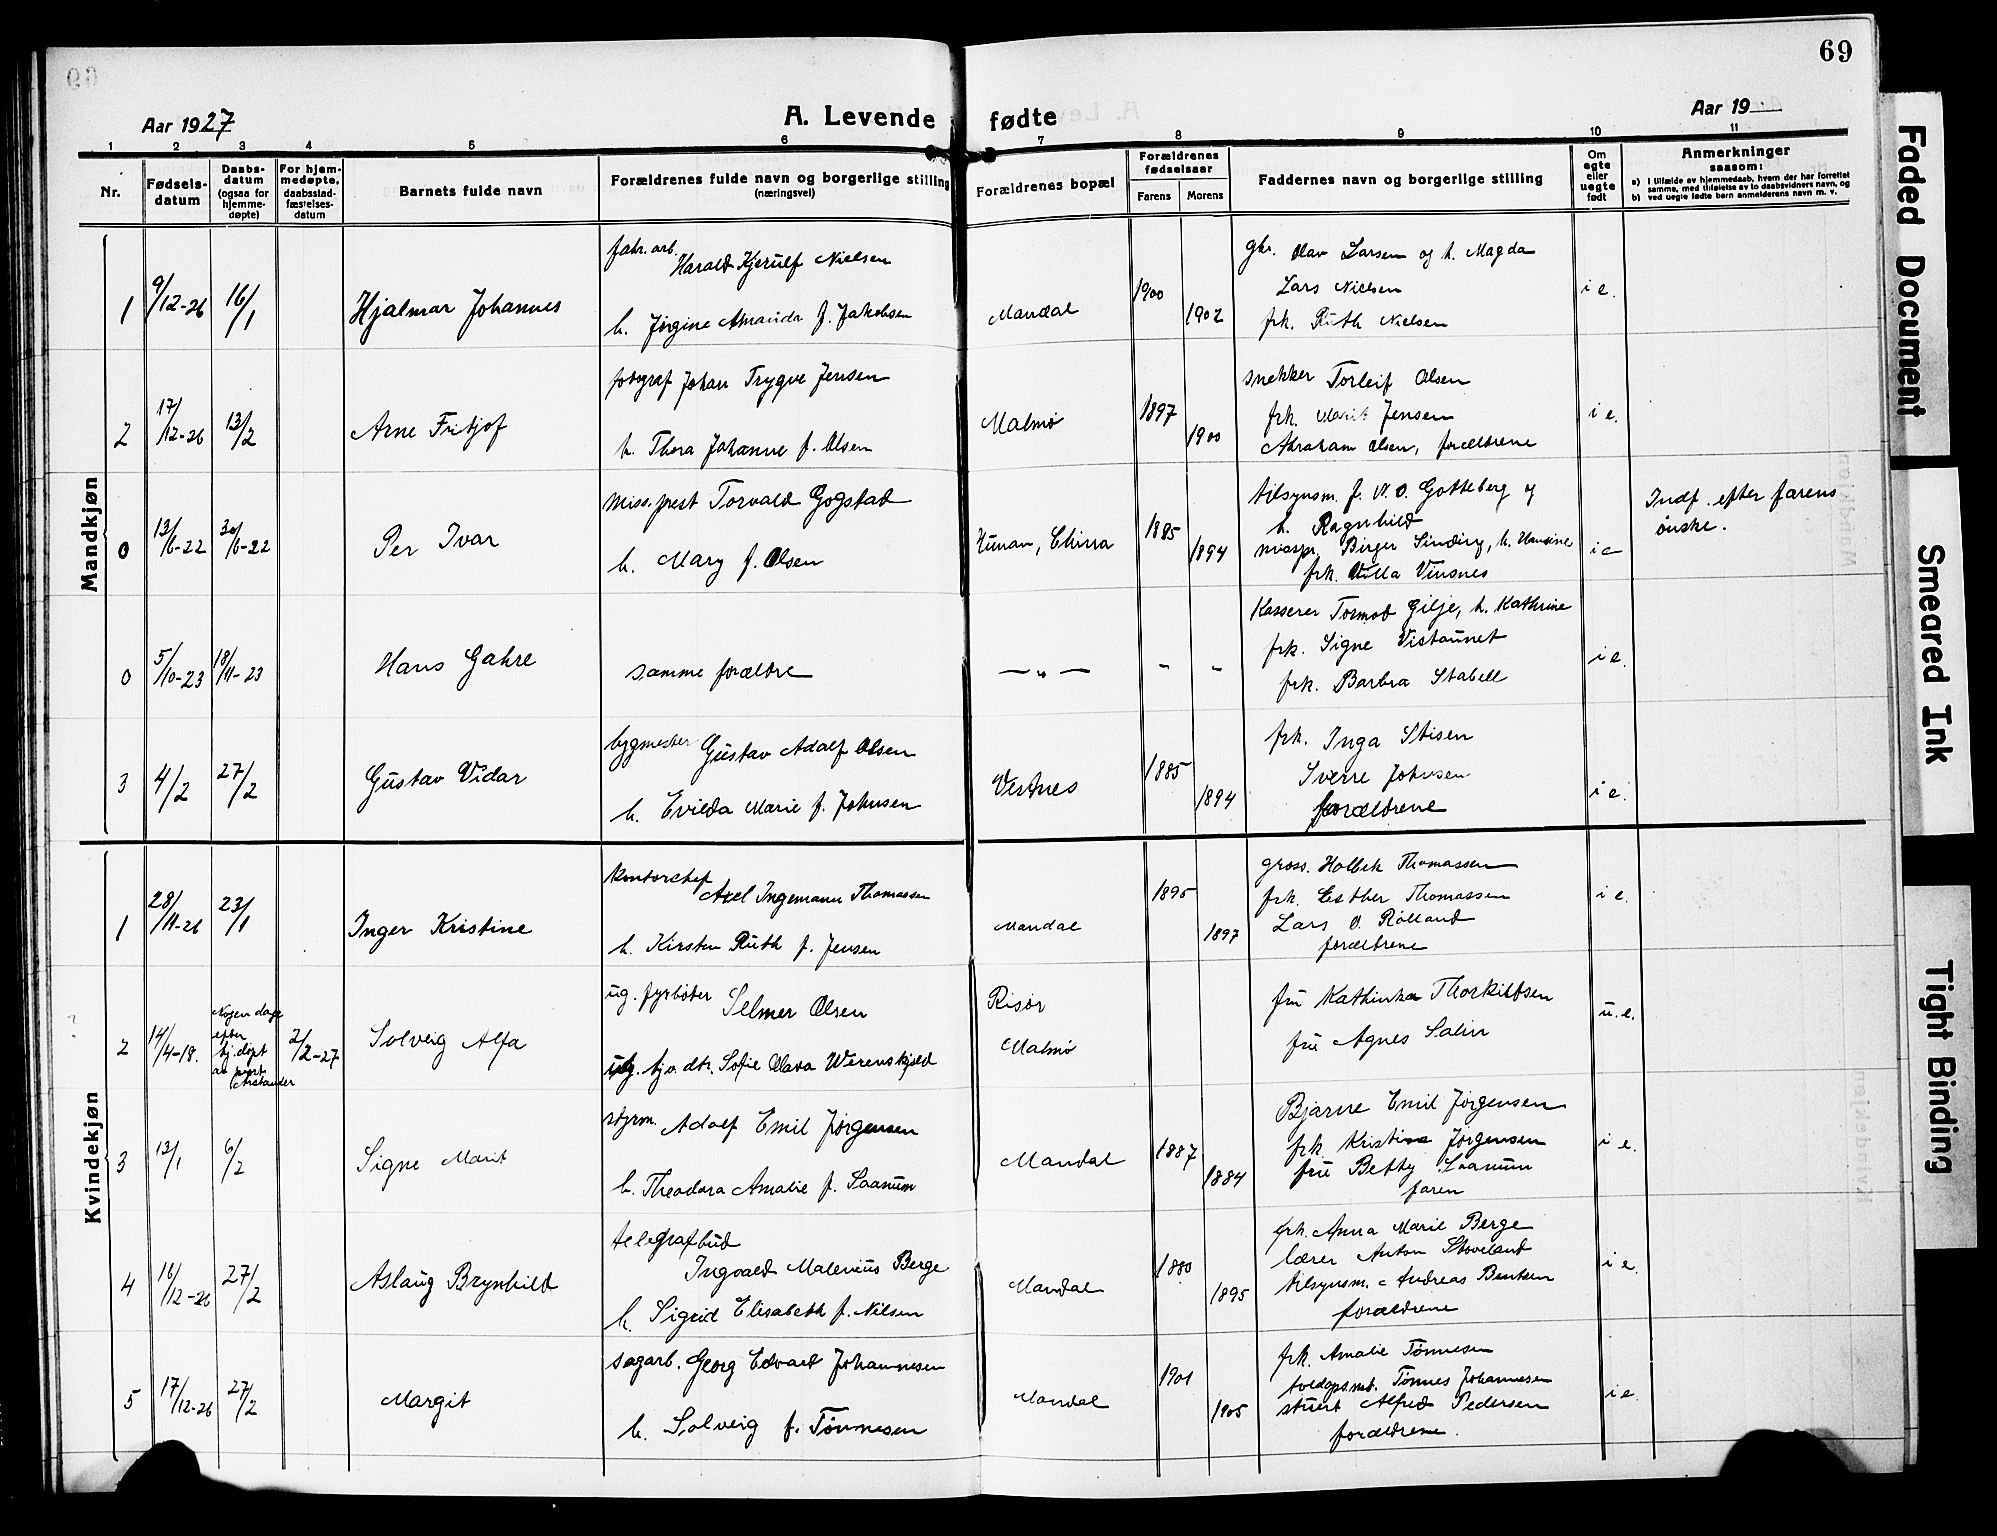 69
Aar 1927
A. Levende fødte
Aar 19
1 2 3 4 5 6 7 8 9 10 11
Nr.
Fødsels-
datum
Daabs-
datum
(ogsaa for
hjemme-
døpte)
For hjem-
medøpte,
daabsstad-
fæstelses-
datum
Barnets fulde navn
Forældrenes fulde navn og borgerlige stilling
(næringsvei)
Forældrenes bopæl
Forældrenes
fødselsaar
Farens Morens
Faddernes navn og borgerlige stilling
Om
egte
eller
uegte
født
Anmerkninger
saasom:
a) I tilfælde av hjemmedaab, hvem der har forrettet
samme, med tilføielse av to daabsvidners navn, og
b) ved uegte fødte barn anmelderens navn m. v.
Mandkjøn
1 9/12-26 16/1 Hjalmar Johannes
fabr. arb.
Harald Kjerulf Nielsen
h. Jørgine Amanda f. Jakobsen
Mandal 1900 1902
gbr. Olav Larsen og h. Magda
Lars Nielsen
frk. Ruth Nielsen
i e.
2 17/12-26 13/2 Arne Fritjof
fotograf Johan Trygve Jensen
h. Thora Johanne f. Olsen
Malmö 1897 1900
snekker Torleif Olsen
frk. Marit Jensen
Abraham Olsen, forældrene
i e.
0 13/6-22 30/6-22 Per Ivar
miss. prest Torvald Gogstad
h. Mary f. Olsen
Hunan, China 1885 1894
tilsynsm. f. N. O. Gotteberg og
h. Ragnhild
misspr. Birger Sinding, h. Hansine
frk. Ulla Vinsnes
i e
Indf. efter farens
ønske.
0 5/10-23 18/11-23 Hans Gahre
samme forældre
— " — - -
Kasserer Tormod Gilje, h. Kathrine
frk. Signe Vistaunet
frk. Barbra Stabell
i e.
3 4/2 27/2 Gustav Vidar
bygmester Gustav Adolf Olsen
h. Evilda Marie f. Johnsen
Vestnes 1885 1894
frk. Inga Stisen
Sverre Johnsen
forældrene
i e.
Kvindekjøn
1 28/11-26 23/1 Inger Kristine
kontorchef
Axel Ingemann Thomassen
h. Kirsten Ruth f. Jensen
Mandal 1895 1897
gross. Holbek Thomassen
frk. Esther Thomassen
Lars O. Rolland
forældrene
i e.
2 14/4-18.
Nogen dage
efter
hj. døpt
av prest
2/2-27 Solveig Alfa
ug. fyrbøter Selmer Olsen
Risør
ug. hjv. dtr. Sofie Olava Werenskjold
Malmö
fru Kathinka Thorkildsen
fru Agnes Salin
u. e.
3 13/1 6/2 Signe Marit
styrm. Adolf Emil Jørgensen
h. Theodora Amalie f. Saanum
Mandal 1887 1884
Bjarne Emil Jørgensen
frk. Kristine Jørgensen
fru Betty Saanum
faren
i e.
4 16/12-26 27/2 Aslaug Brynhild
telegrafbud
Ingvald Malenius Berge
h. Sigrid Elisabeth f. Nilsen
Mandal 1880 1895
frk. Anna Marie Berge
lærer Anton Stoveland
tilsynsm. Andreas Bentsen
forældrene
i e.
5 17/12-26 27/2 Margit
sagarb. Georg Edvard Johannesen
h. Solveig f. Tønnesen
Mandal 1901 1905
frk. Amalie Tønnesen
toldopsmt. Tønnes Johannesen
stuert Alfred Pedersen
forældrene.
i e.
Faded Document
Smeared Ink
Tight Binding